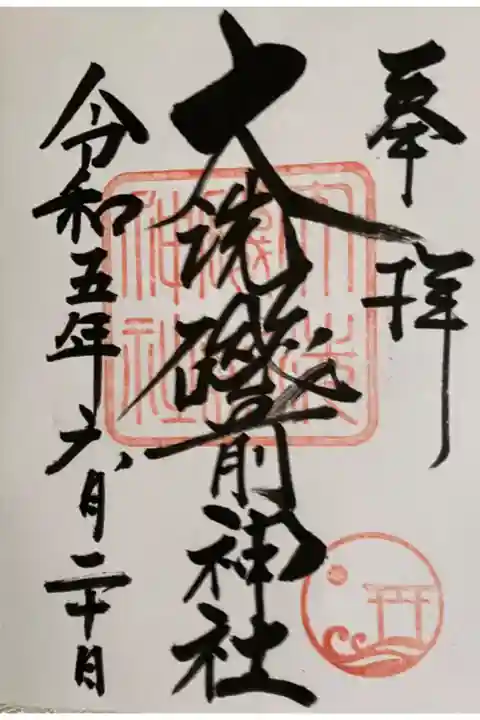 奉拝
大洗磯前神社
令和五年六月二十日
大洗磯前神社